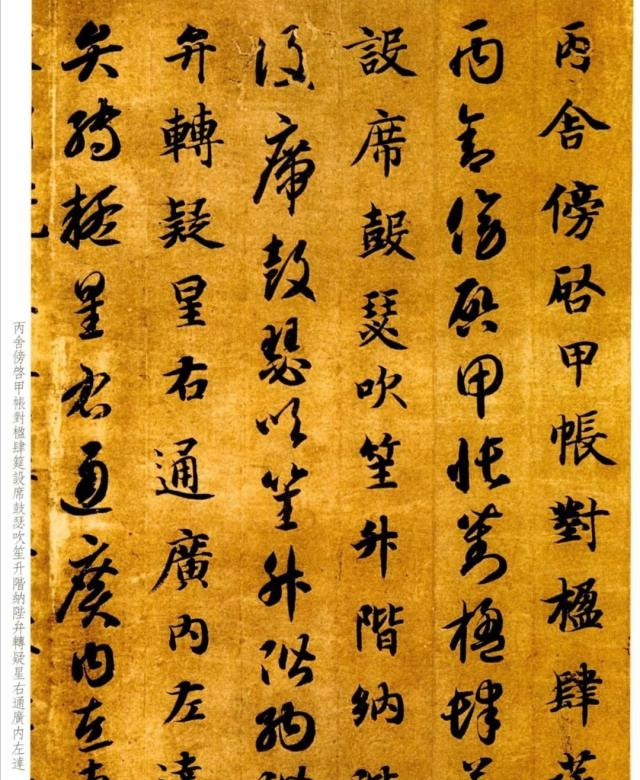 丙舍傍啓甲帳對楹肆
丙舍傍啓甲帳對楹肆
設席鼓瑟吹笙升階納
設席鼓瑟吹笙升階納
弁轉疑星右通廣內左達
弁轉疑星右通廣內左
丙舍傍啓甲帳對楹肆筵設席鼓瑟吹笙升階納陛弁轉疑星右通廣內左達